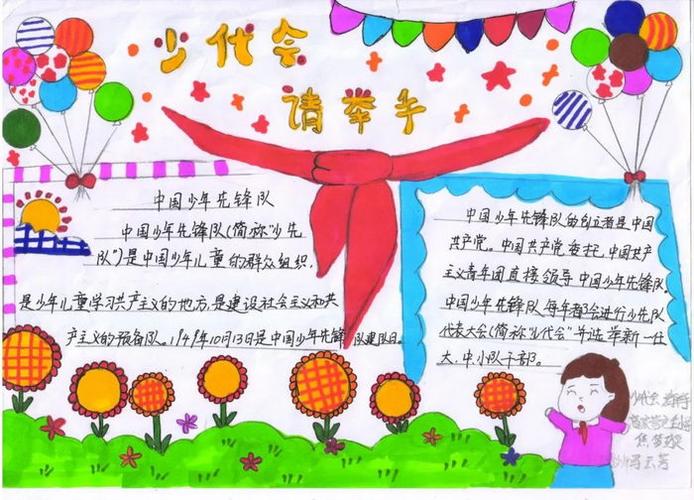 少代会
请举手
中国少年先锋队
中国少年先锋队(简称“少先
队”)是中国少年儿童的群众组织,
是少年儿童学习共产主义的地方,是建设社会主义和共
产主义的预备队。1949年10月13日是中国少年先锋队建队日。
中国少年先锋队的创立者是中国
共产党。中国共产党委托中国共产
主义青年团直接领导中国少年先锋队。
中国少年先锋队每年都会进行少先队
代表大会(简称“少代会”)并选举新一任
大、中、小队干部。
少代会 请举手